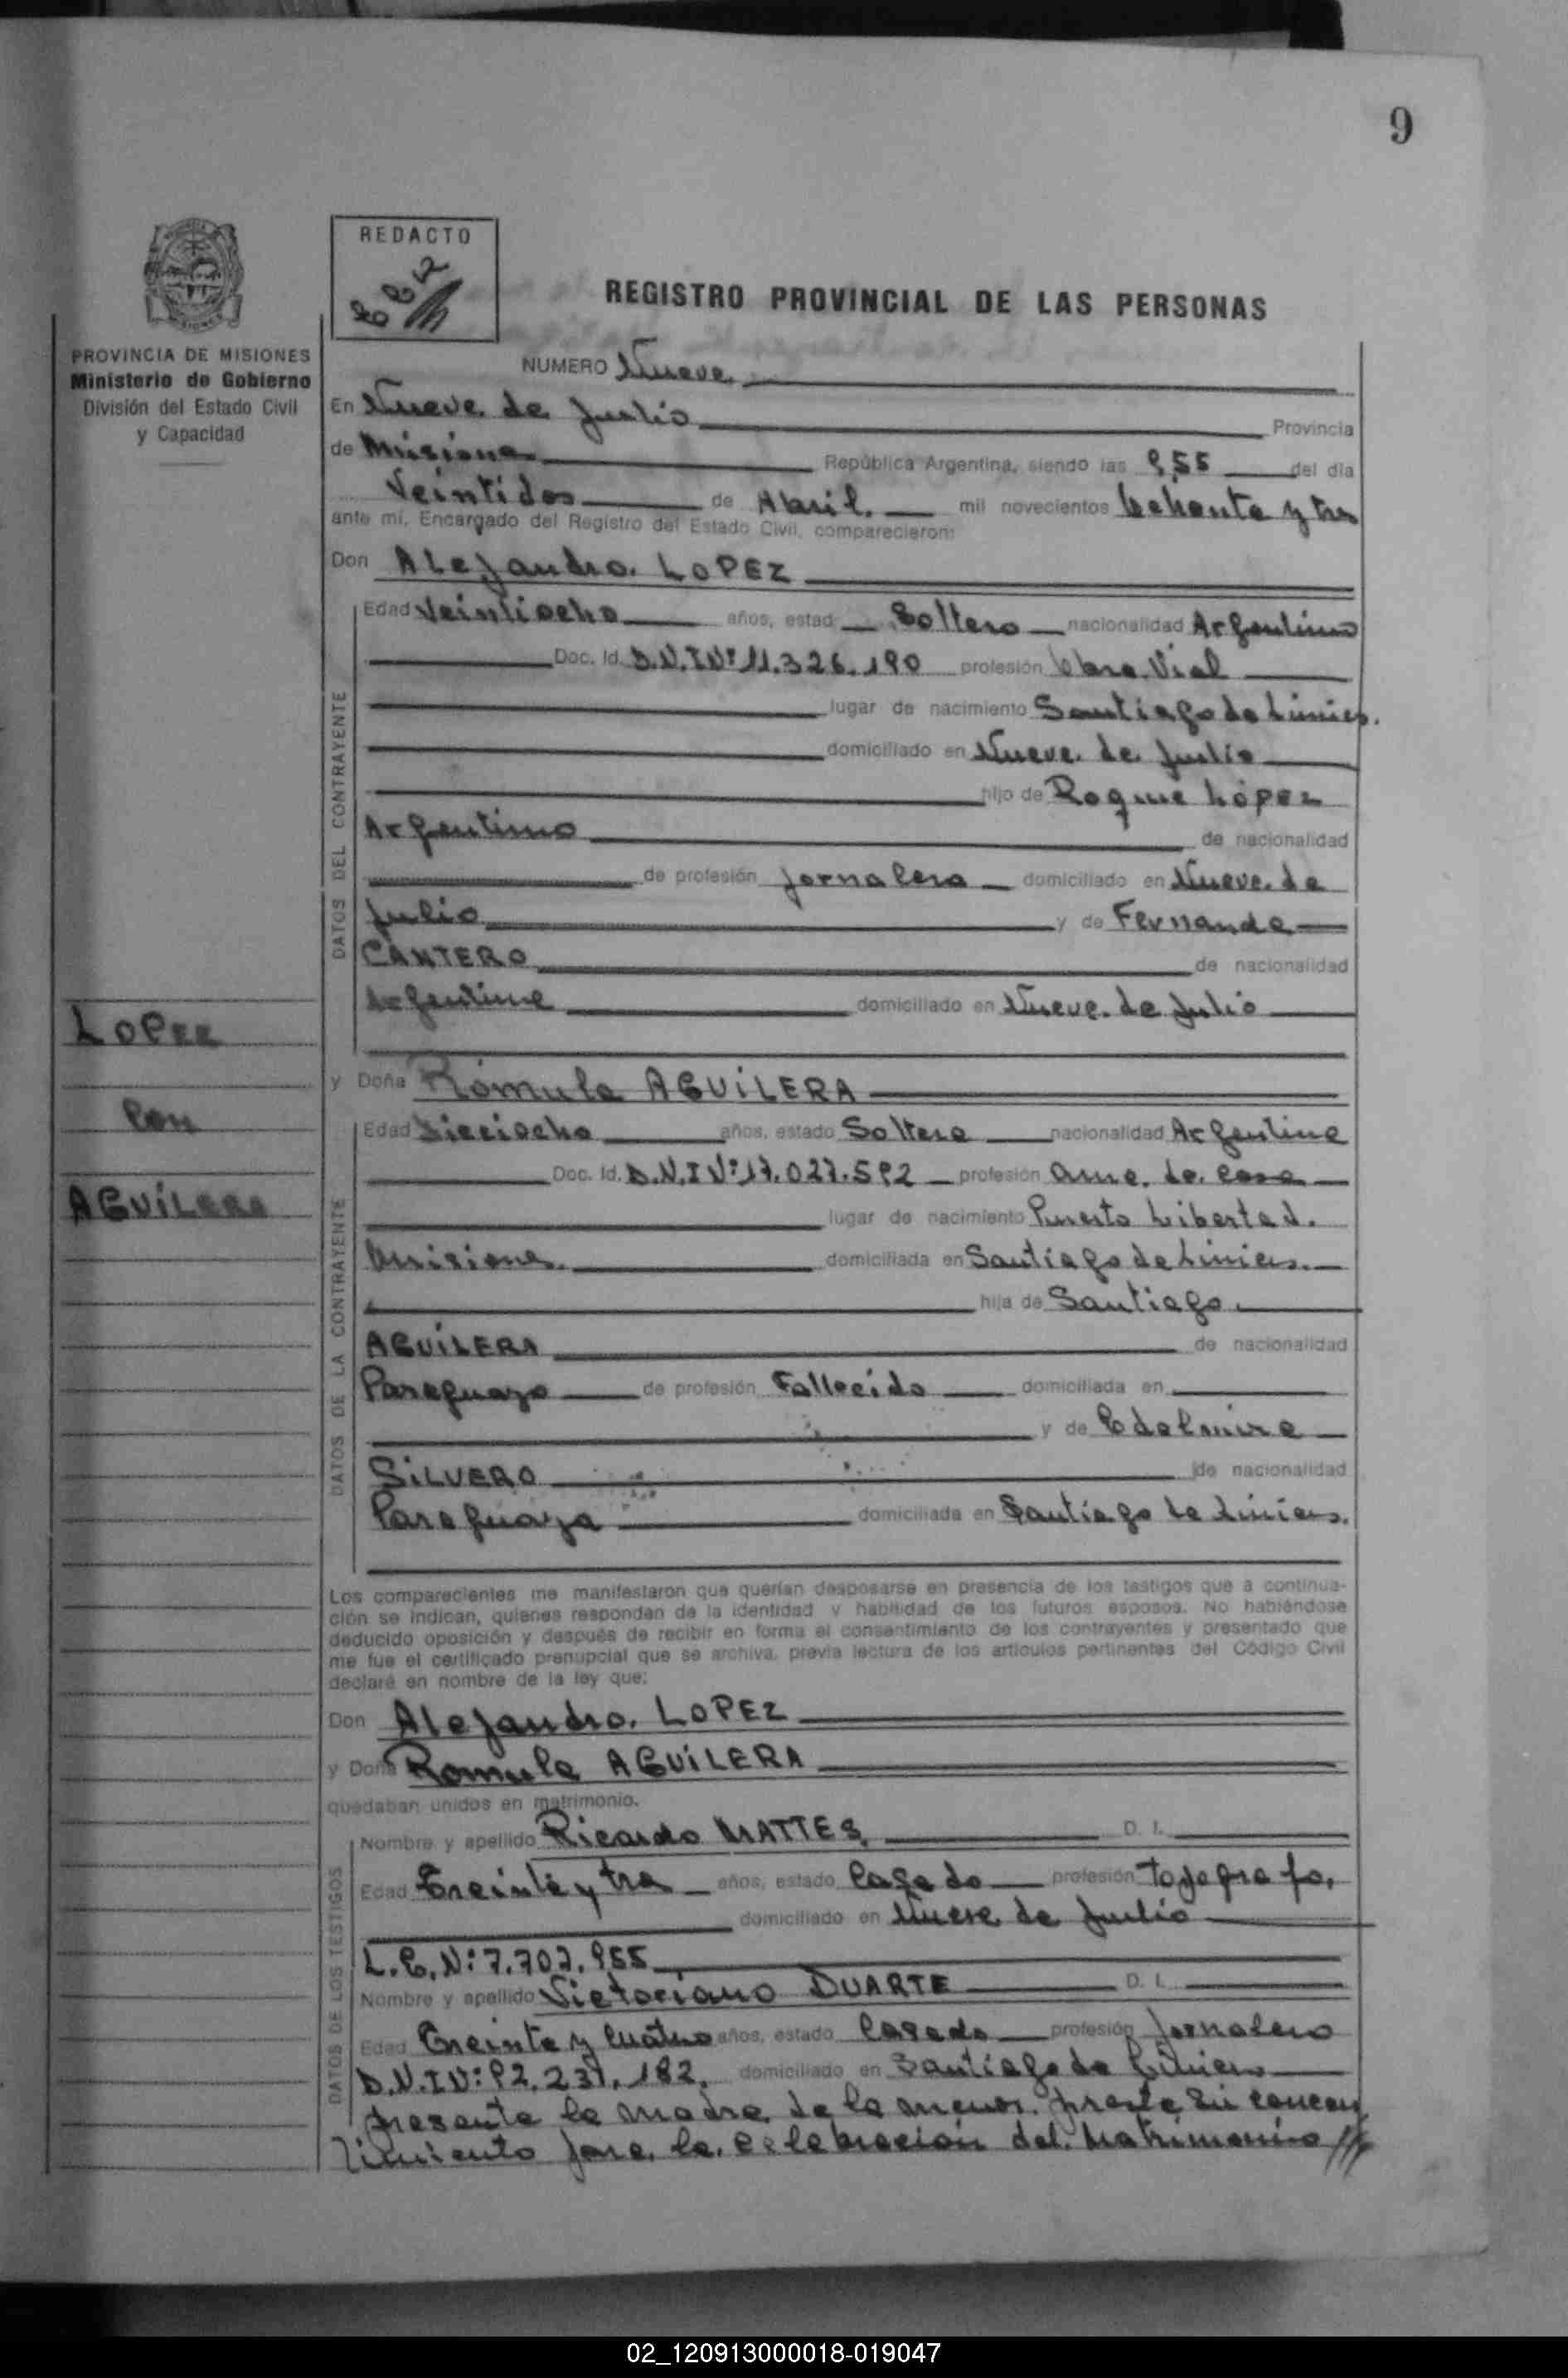 9
REDACTO
REGISTRO PROVINCIAL DE LAS PERSONAS
PROVINCIA DE MISIONES
Ministerio de Gobierno
División del Estado Civil
y Capacidad
NUMERO Nueve
En Nueve de Julio Provincia
de Misiones República Argentina, siendo las 9,55 del día
Veintidos de Abril. mil novecientos Ochenta y tres
ante mí, Encargado del Registro del Estado Civil, comparecieron:
Don Alejandro. LOPEZ
DATOS DEL CONTRAYENTE
Edad Veintiocho años, estad Soltero nacionalidad Argentino
Doc. Id. D.N.I Nº 11.326.190 profesión Obre. Vial
lugar de nacimiento Santiago de Liniers.
domiciliado en Nueve de Julio
hijo de Roque López
Argentino de nacionalidad
de profesión Jornalero domiciliado en Nueve de
Julio y de Fernanda
CANTERO de nacionalidad
Argentina domiciliado en Nueve de Julio
LOPEZ
Con
AGUILERA
y Doña Rómula AGUILERA
DATOS DE LA CONTRAYENTE
Edad Dieciocho años, estado Soltera nacionalidad Argentina
Doc. Id. D.N.I Nº 17.027.592 profesión ama. de. casa
lugar de nacimiento Puerto Libertad.
Misiones. domiciliada en Santiago de Liniers.
hija de Santiago.
AGUILERA de nacionalidad
Paraguayo de profesión Fallecido domiciliada en
y de Edelmira
SILVERO de nacionalidad
Paraguaya domiciliada en Santiago de Liniers.
Los comparecientes me manifestaron que querían desposarse en presencia de los testigos que a continua-
ción se indican, quienes responden de la identidad y habilidad de los futuros esposos. No habiéndose
deducido oposición y después de recibir en forma el consentimiento de los contrayentes y presentado que
me fue el certificado prenupcial que se archiva, previa lectura de los artículos pertinentes del Código Civil
declaré en nombre de la ley que:
Don Alejandro. LOPEZ
y Doña Romula AGUILERA
quedaban unidos en matrimonio.
DATOS DE LOS TESTIGOS
Nombre y apellido Ricardo MATTES, D. I.
Edad Treinta y tres años, estado Casado profesión Topografo,
domiciliado en Nueve de Julio
L.E.N: 7.707.955
Nombre y apellido Victoriano DUARTE D. I.
Edad Treinta y Cuatro años, estado Casado profesión Jornalero
D.N.I N: 92.231.182. domiciliado en Santiago de Liniers
presente la madre de la menor. presta su concen
timiento para. la. celebración del. Matrimonio ///
02_120913000018-019047